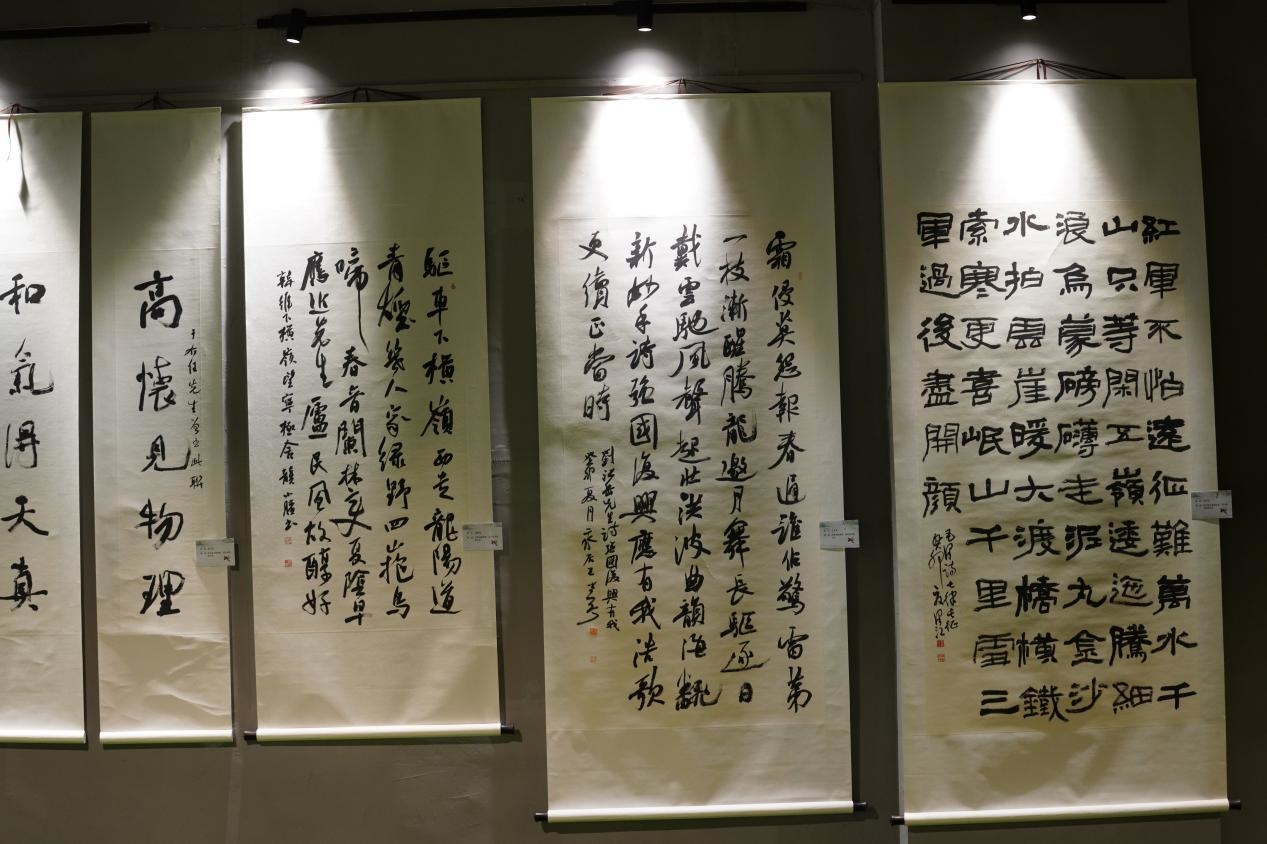 紅軍不怕遠征難萬水千
山只等閑五嶺逶迤騰細
浪烏蒙磅礴走泥丸金沙
水拍雲崖暖大渡橋橫鐵
索寒更喜岷山千里雪三
軍過後盡開顏
七律長征
霜侵英怨報春遲誰佑驚雷第
一枝漸醒騰龍邀月舞長驅逐日
戴雲馳風聲起壯洪波曲韻海飜
新妙手詩強國復興應有我浩歌
更續正當時
先生詩強國復興有我
癸卯夏月
驅車下橫嶺西走龍陽道
青煙幾人家綠野四山抱鳥
啼春音闌林變夏陰早
應近堯生廬民風故醇好
韓維下橫嶺望寧極舍
于右任先生曾書此聯
高懷見物理
和氣得天真